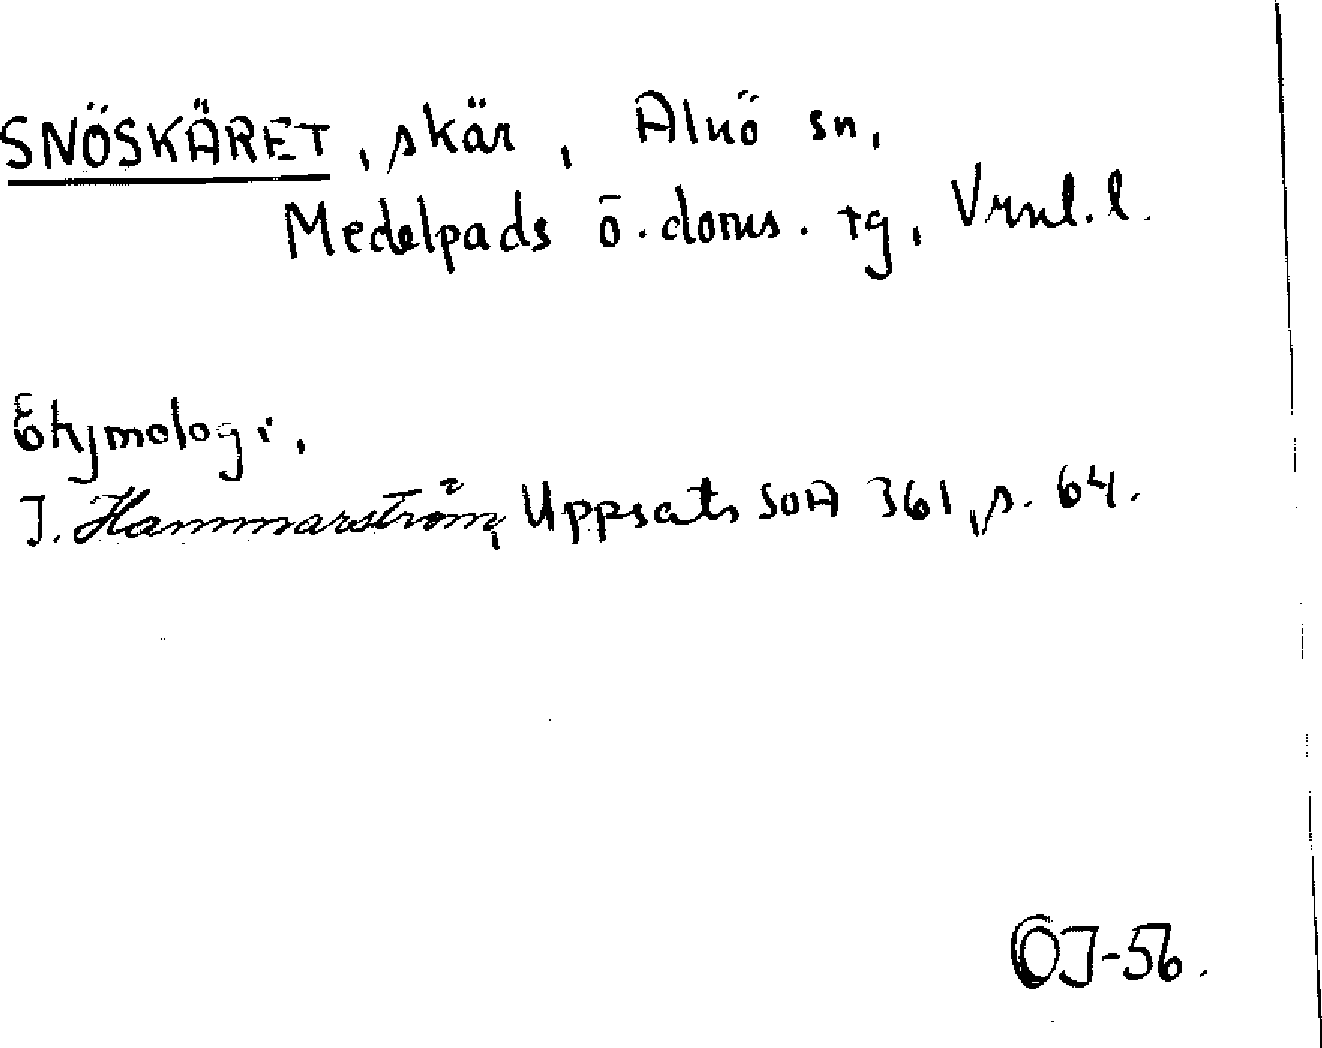 SNÖSKÄRET, skär, Alnö sn,
Medelpads ö. doms. tg, Vrnl. l.
Etymologi,
J. Hammarström, Uppsats SOA 361, s. 64.
OJ-56.